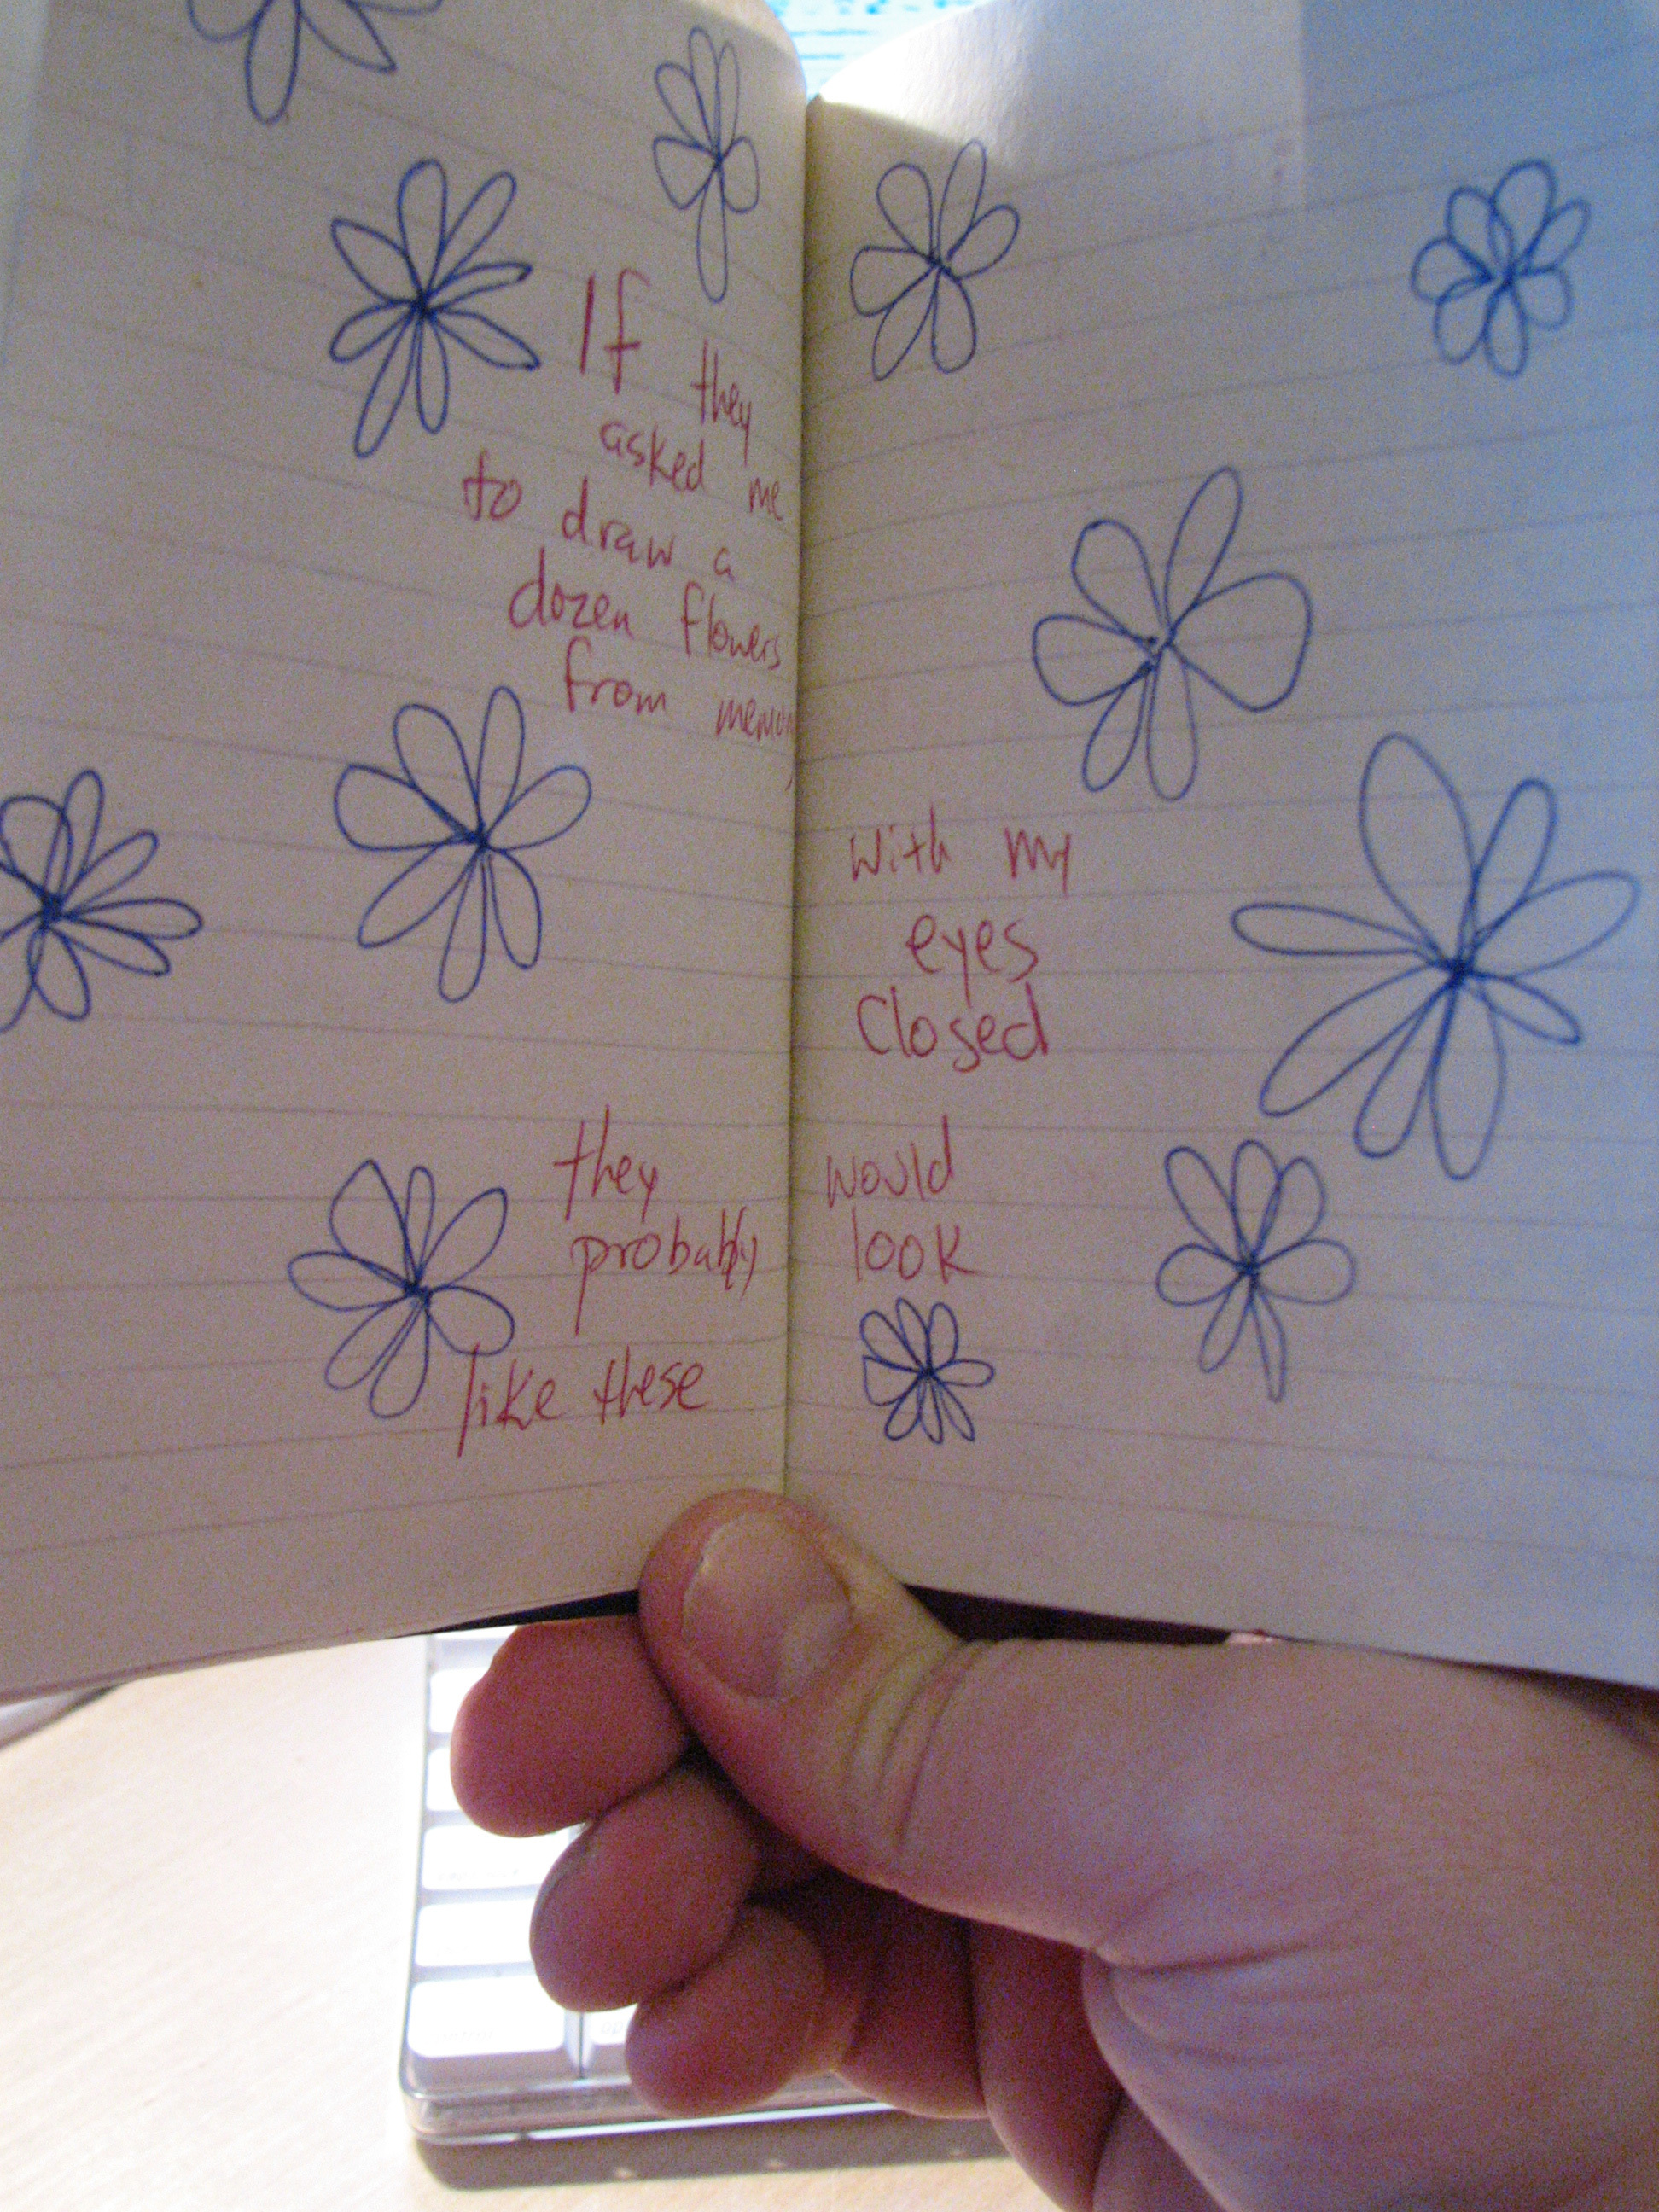 If they
asked me
to draw a
dozen flowers
from memory,
with my
eyes
closed
they would
probably look
like these